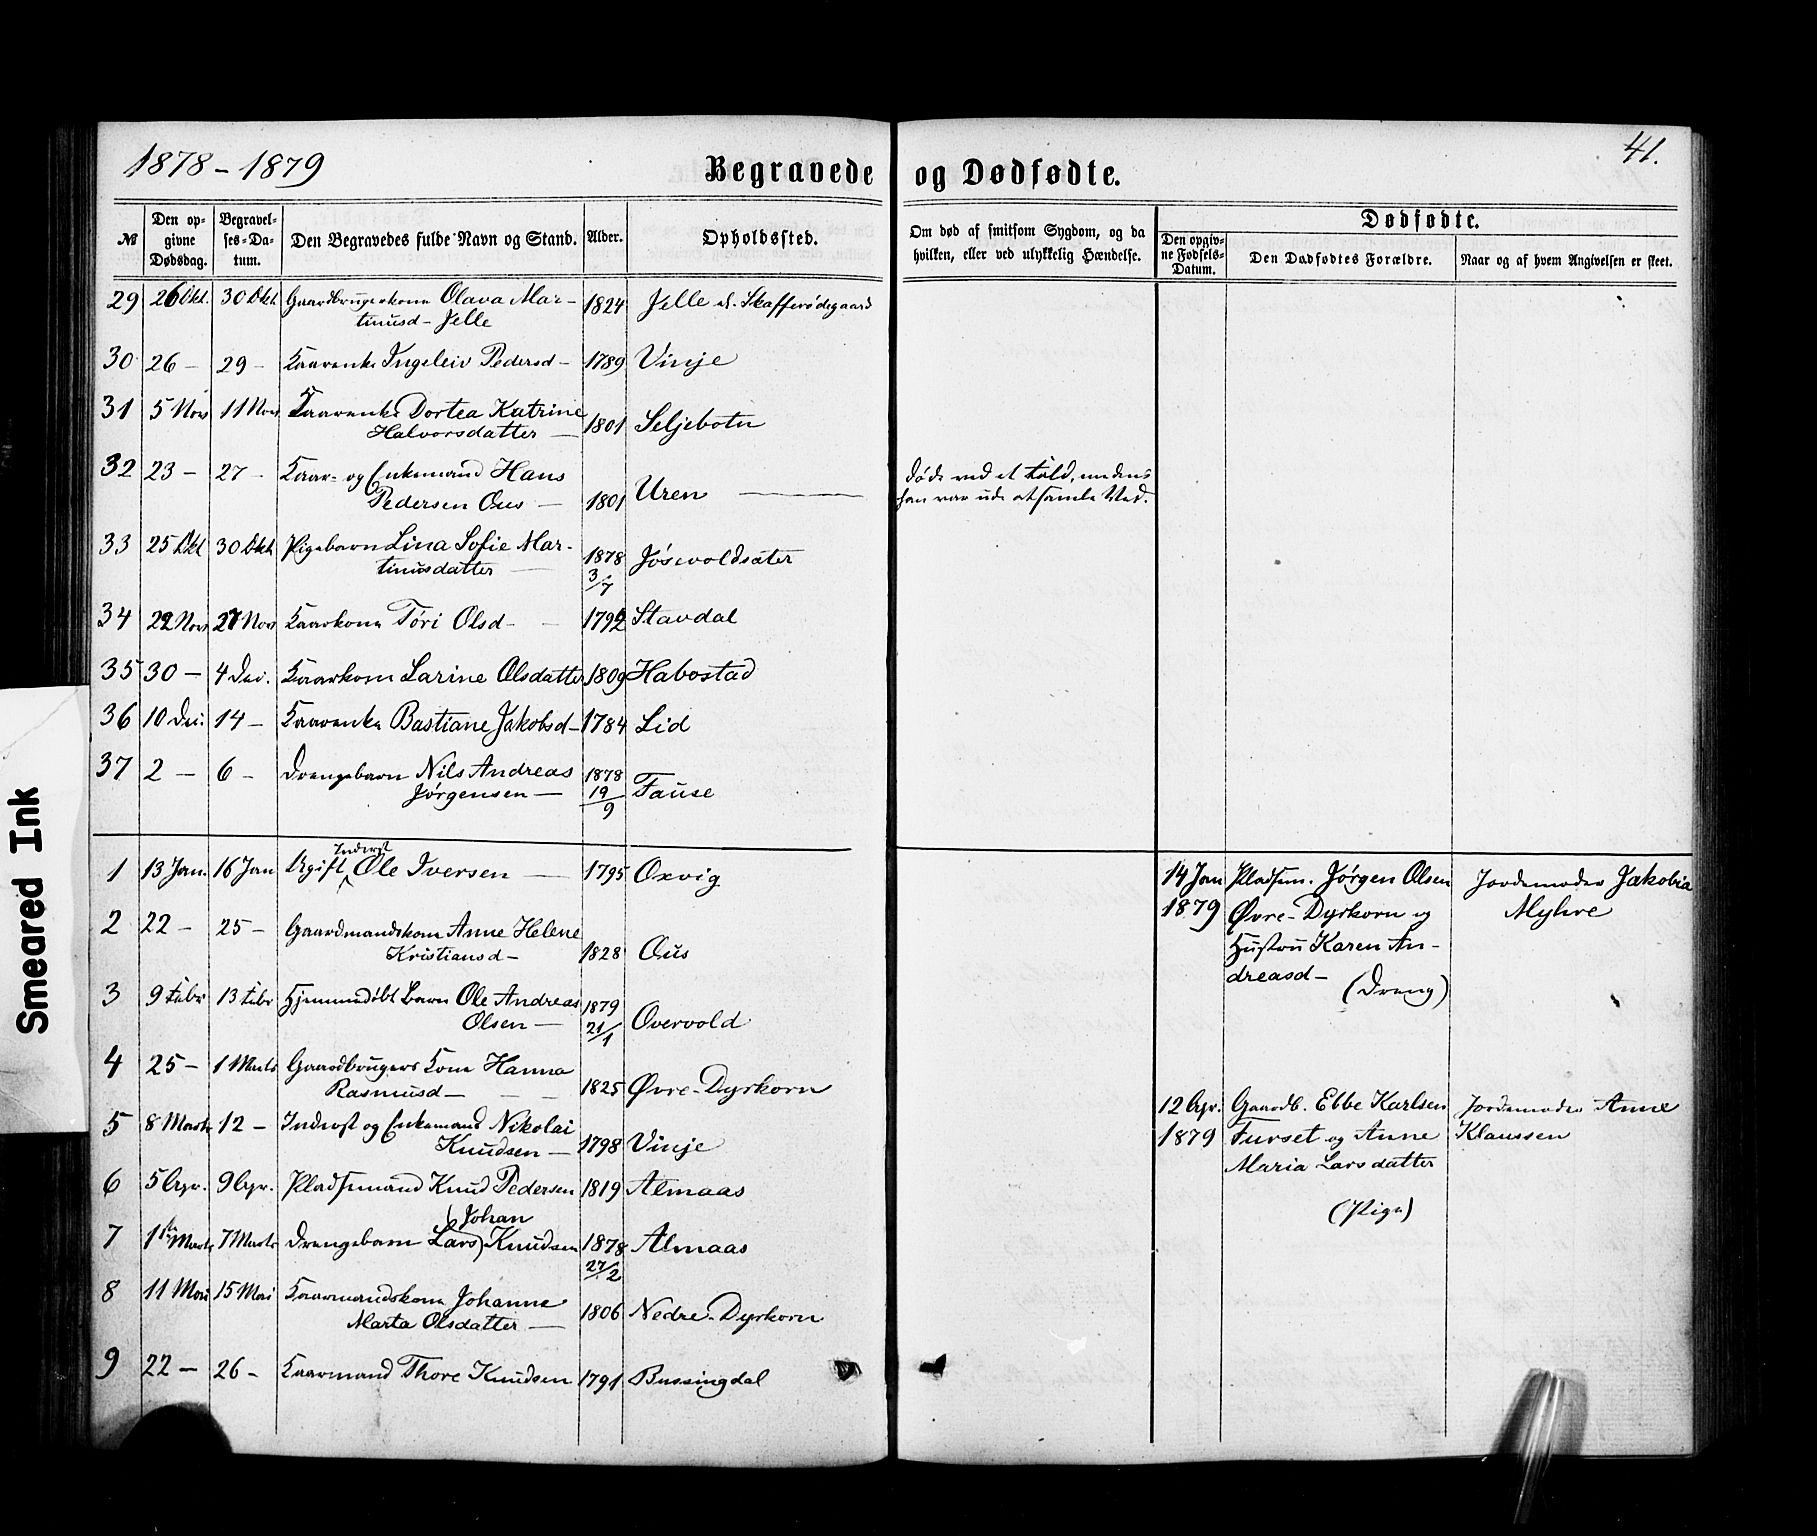 1878 - 1879
Begravede og Dødfødte.
41.
№
Den op-
givne
Dødsdag.
Begravel-
ses-Da-
tum.
Den Begravedes fulde Navn og Stand.
Alder.
Opholdssted.
Om død af smitsom Sygdom, og da
hvilken, eller ved ulykkelig Hændelse.
Dødfødte.
Den opgiv-
ne Fødsels-
Datum.
Den Dødfødtes Forældre.
Naar og af hvem Angivelsen er skeet.
29 26 Okt. 30 Okt. Gaardbrugerkone Olava Mar- 1824 Jelle
tinusd- Jelle
30 26 - 29 - Kaarenke Ingeleiv Pedersd- 1789 Vinje
31 5 Nov 11 Nov Kaarenke Dortea Katrine
Halvorsdatter - 1801 Seljebotn
32 23 - 27 - Kaar- og Enkemand Hans
Pedersen Ous - 1801 Uren
døde ved et Fald, medens
han var ude at samle Ved.
33 25 Okt 30 Okt Pigebarn Lina Sofie Mar-
tinusdatter - 1878 3/7 Jøsevoldsæter
34 22 Nov 27 Nov Kaarkone Tøri Olsd- 1792 Stavdal
35 30 - 4 Dec. Kaarkone Larine Olsdatter 1809 Habostad
36 10 Dec. 14 - Kaarenke Bastiane Jakobsd- 1784 Lid
37 2 - 6 - Drengebarn Nils Andreas
Jørgensen - 1878 19/9 Fause
1 13 Jan. 16 Jan Ugift Inderst Ole Iversen - 1795 Oxvig
2 22 - 25 - Gaardmandskone Anne Helene
Kristiansd- 1828 Ous
3 9 Febr 13 Febr Hjemmedøbt Barn Ole Andreas
Olsen - 1879 21/1 Overvold
4 25 - 1 Marts Gaardbrugers Kone Hanna
Rasmusd - 1825 Øvre-Dyrkorn
5 8 Marts 12 - Inderst og Enkemand Nikolai
Knudsen - 1798 Vinje
6 5 Apr. 9 Apr. Pladsemand Knud Pedersen 1819 Almaas
7 1ste Marts 7 Marts Drengebarn Lars (Johan) Knudsen 1878 27/2 Almaas
8 11 Mai 15 Mai Kaarmandskone Johanne
Marta Olsdatter - 1806 Nedre-Dyrkorn
9 22 - 26 - Kaarmand Thore Knudsen 1791 Bussingdal
14 Jan
1879
Pladsm. Jørgen Olsen
Øvre-Dyrkorn og
Hustru Karen An-
dreasd -
(Dreng)
Jordemoder Jakobia
Myhre
12 Apr.
1879
Gaardb. Ebbe Karlsen
Furset og Anne
Maria Larsdatter
(Pige)
Jordemoder Anne
Klaussen
Smeared Ink